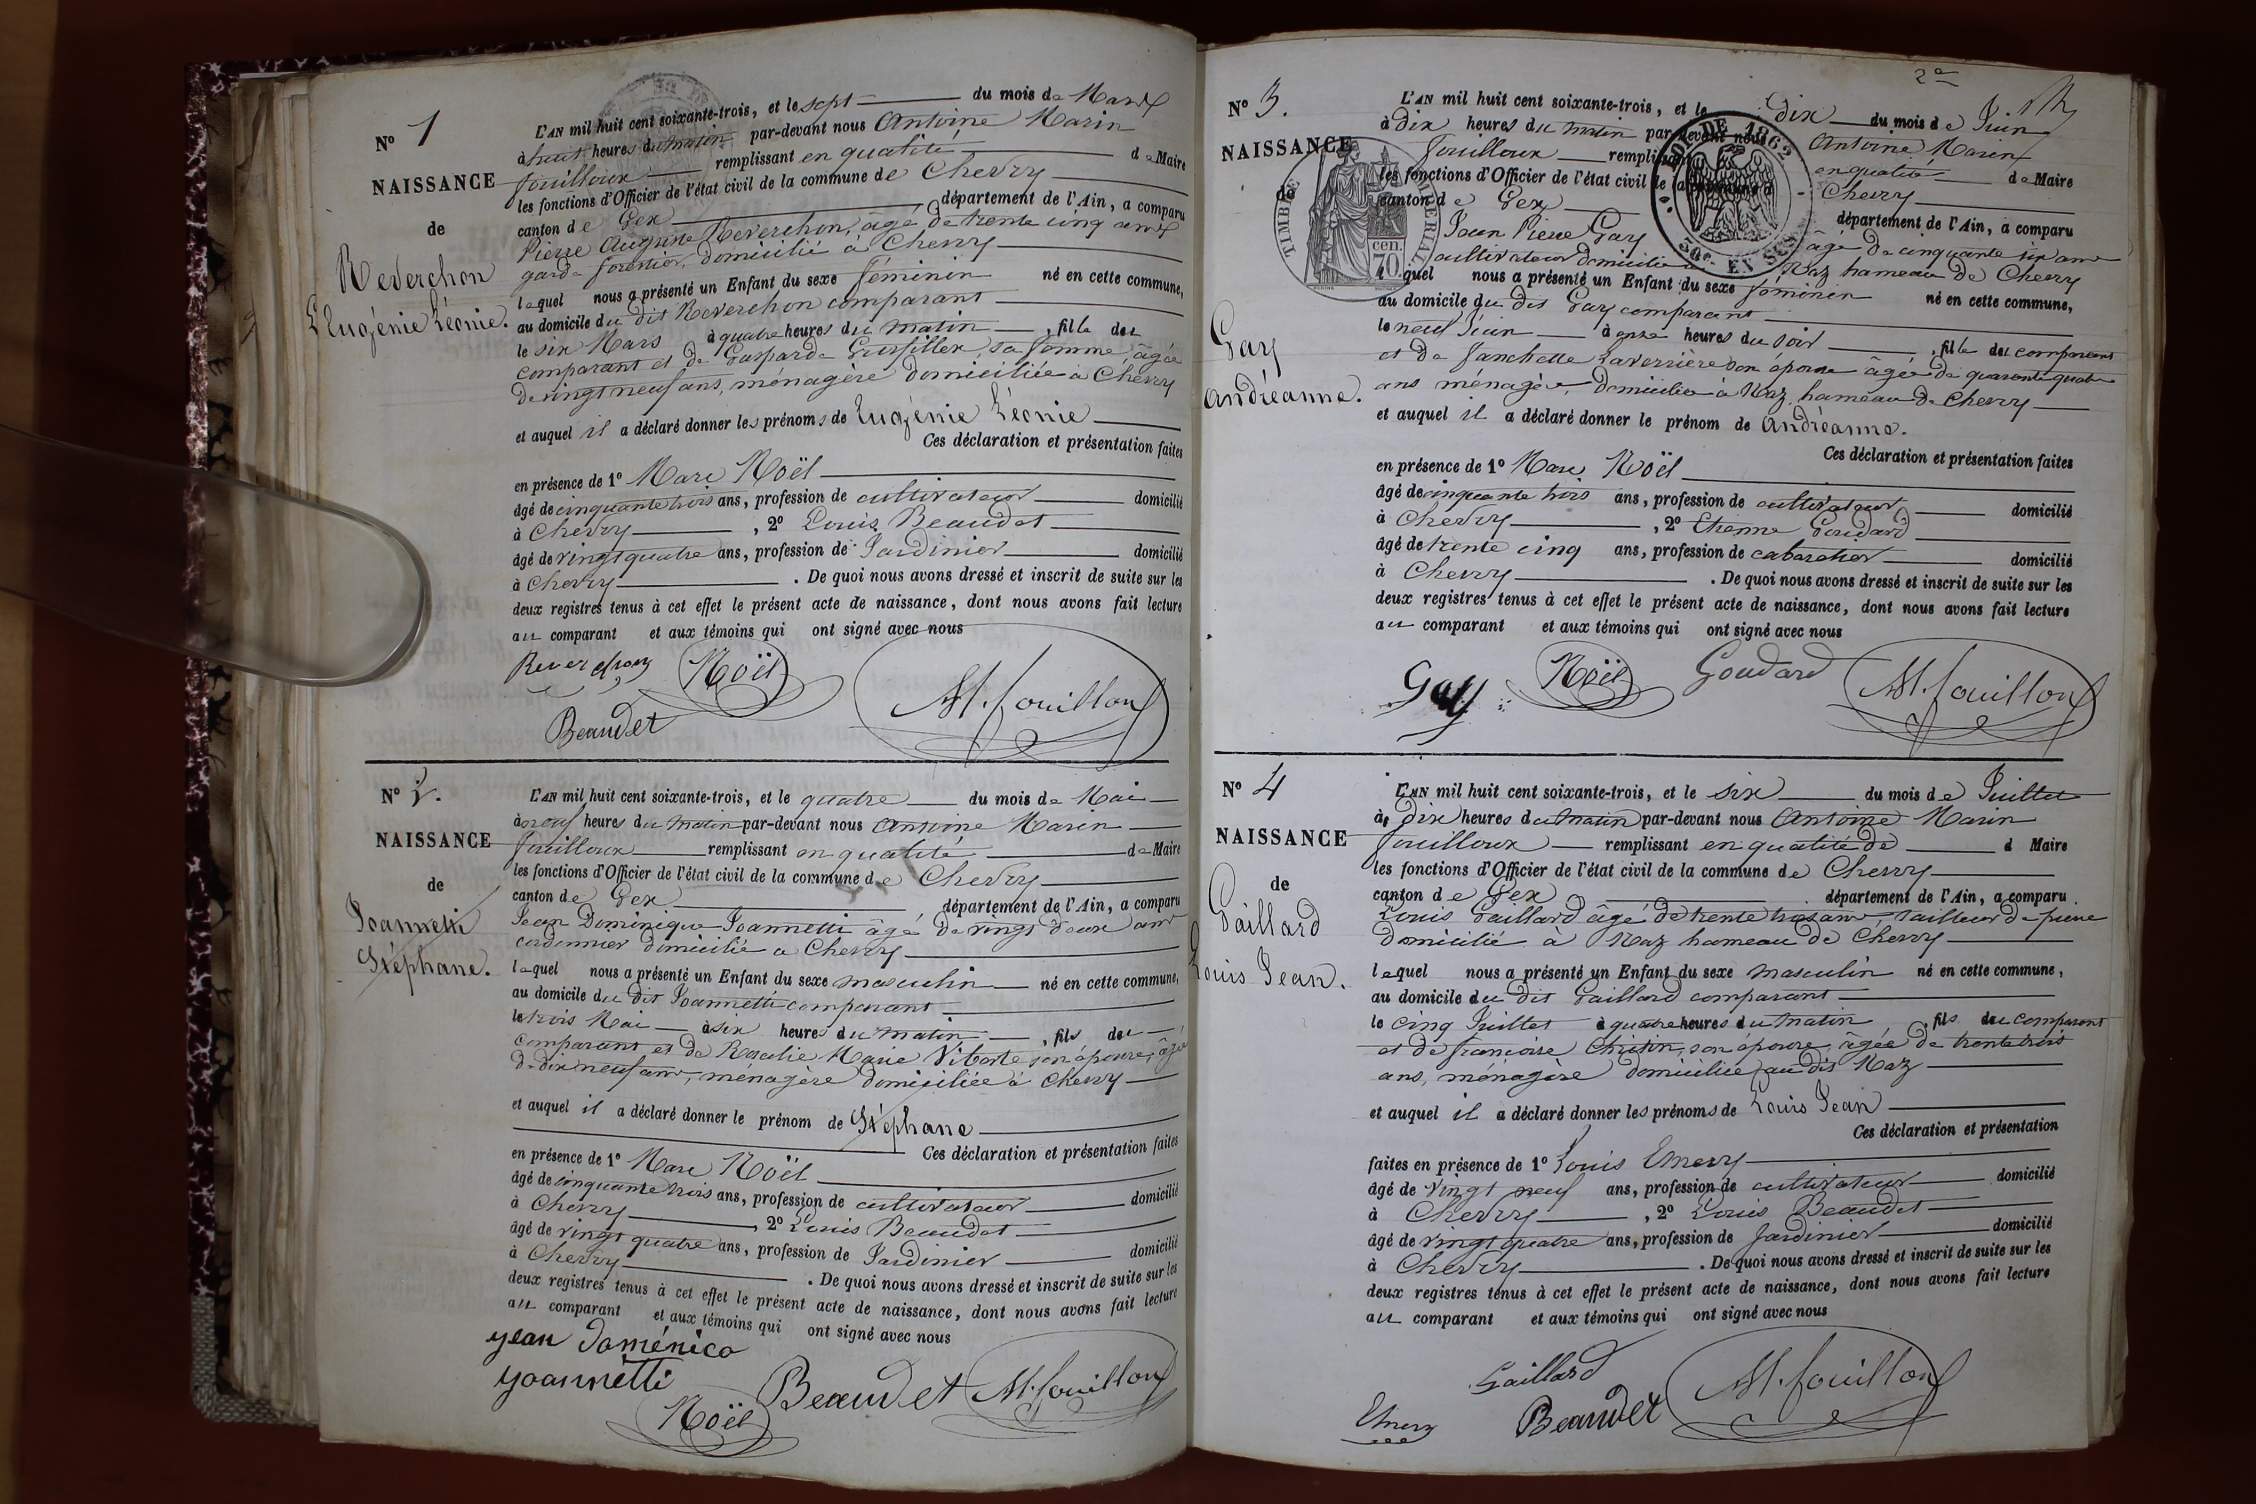 N° 1
NAISSANCE
de
Reverchon
Eugénie Léonie.
L'AN mil huit cent soixante-trois, et le sept du mois de Mars
à huit heures du matin par-devant nous Antoine Marin
Fouilloux remplissant en qualité de Maire
les fonctions d'Officier de l'état civil de la commune de Chevry
canton de Gex département de l'Ain, a comparu
Pierre Auguste Reverchon, âgé de trente cinq ans
garde forestier, domicilié à Chevry
lequel nous a présenté un Enfant du sexe féminin né en cette commune,
au domicile du dit Reverchon comparant
le six Mars à quatre heures du matin, fille du
comparant et de Gasparde sa femme, âgée
de vingt neuf ans, ménagère domiciliée à Chevry
et auquel il a déclaré donner les prénoms de Eugénie Léonie
Ces déclaration et présentation faites
en présence de 1° Marc Noël
âgé de cinquante trois ans, profession de cultivateur domicilié
à Chevry, 2° Louis Beaudet
âgé de vingt quatre ans, profession de Jardinier domicilié
à Chevry. De quoi nous avons dressé et inscrit de suite sur les
deux registres tenus à cet effet le présent acte de naissance, dont nous avons fait lecture
au comparant et aux témoins qui ont signé avec nous
Reverchon Noël
Beaudet M. fouilloux
N° 2.
NAISSANCE
de
Joannetti
Stéphane.
L'AN mil huit cent soixante-trois, et le quatre du mois de Mai
à neuf heures du matin par-devant nous Antoine Marin
Fouilloux remplissant en qualité de Maire
les fonctions d'Officier de l'état civil de la commune de Chevry
canton de Gex département de l'Ain, a comparu
Jean Dominique Joannetti âgé de vingt deux ans
cordonnier domicilié à Chevry
lequel nous a présenté un Enfant du sexe masculin né en cette commune,
au domicile du dit Joannetti comparant
le trois Mai à six heures du matin, fils du
comparant et de Rosalie Marie son épouse, âgée
de dix neuf ans, ménagère domiciliée à Chevry
et auquel il a déclaré donner le prénom de Stéphane
Ces déclaration et présentation faites
en présence de 1° Marc Noël
âgé de cinquante trois ans, profession de cultivateur domicilié
à Chevry, 2° Louis Beaudet
âgé de vingt quatre ans, profession de Jardinier domicilié
à Chevry. De quoi nous avons dressé et inscrit de suite sur les
deux registres tenus à cet effet le présent acte de naissance, dont nous avons fait lecture
au comparant et aux témoins qui ont signé avec nous
yean doménico
yoannetti
Noël Beaudet M. fouilloux
2e
N° 3.
NAISSANCE
de
Gay
Andréanne.
TIMBRE IMPERIAL
70 cen.
COP. DE 1862
50c. EN SUS
L'AN mil huit cent soixante-trois, et le dix du mois de Juin
à dix heures du matin par-devant nous Antoine Marin
Fouilloux remplissant en qualité de Maire
les fonctions d'Officier de l'état civil de la commune de Chevry
canton de Gex département de l'Ain, a comparu
Jean Pierre Gay âgé de cinquante six ans
cultivateur domicilié à Naz hameau de Chevry
lequel nous a présenté un Enfant du sexe féminin né en cette commune,
au domicile du dit Gay comparant
le neuf Juin à onze heures du soir, fille du comparant
et de Fanchette Laverrière son épouse âgée de quarante quatre
ans ménagère, domiciliée à Naz, hameau de Chevry
et auquel il a déclaré donner le prénom de Andréanne.
Ces déclaration et présentation faites
en présence de 1° Marc Noël
âgé de cinquante trois ans, profession de cultivateur domicilié
à Chevry, 2° Etienne Goudard
âgé de trente cinq ans, profession de cabaretier domicilié
à Chevry. De quoi nous avons dressé et inscrit de suite sur les
deux registres tenus à cet effet le présent acte de naissance, dont nous avons fait lecture
au comparant et aux témoins qui ont signé avec nous
Gay Noël Goudard M. fouilloux
N° 4
NAISSANCE
de
Gaillard
Louis Jean.
L'AN mil huit cent soixante-trois, et le six du mois de Juillet
à dix heures du matin par-devant nous Antoine Marin
Fouilloux remplissant en qualité de d Maire
les fonctions d'Officier de l'état civil de la commune de Chevry
canton de Gex département de l'Ain, a comparu
Louis Gaillard âgé de trente trois ans tailleur de pierre
domicilié à Naz hameau de Chevry
lequel nous a présenté un Enfant du sexe masculin né en cette commune,
au domicile du dit Gaillard comparant
le cinq Juillet à quatre heures du matin, fils du comparant
et de françoise son épouse, âgée de trente trois
ans, ménagère domiciliée au dit Naz
et auquel il a déclaré donner les prénoms de Louis Jean
Ces déclaration et présentation
faites en présence de 1° Louis Emery
âgé de vingt neuf ans, profession de cultivateur domicilié
à Chevry, 2° Louis Beaudet
âgé de vingt quatre ans, profession de Jardinier domicilié
à Chevry. De quoi nous avons dressé et inscrit de suite sur les
deux registres tenus à cet effet le présent acte de naissance, dont nous avons fait lecture
au comparant et aux témoins qui ont signé avec nous
Gaillard
Emery Beaudet M. fouilloux